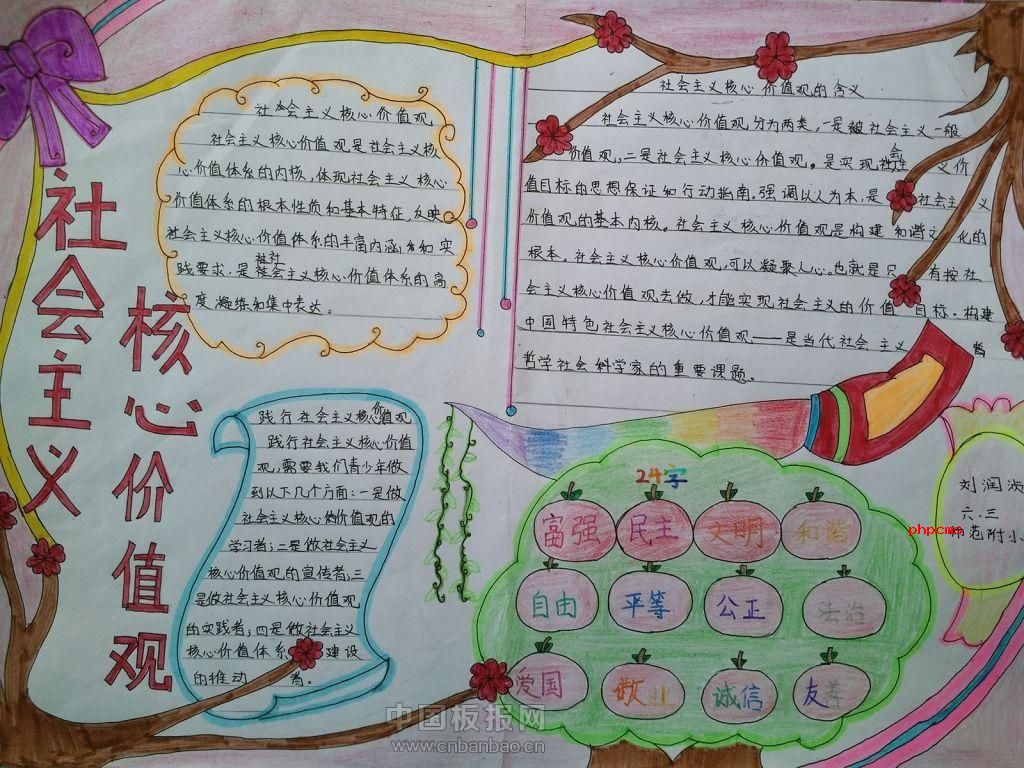 社会主义
核心价值观
社会主义核心价值观
社会主义核心价值观是社会主义核
心价值体系的内核,体现社会主义核心
价值体系的根本性质和基本特征,反映
社会主义核心价值体系的丰富内涵和实
践要求,是社会主义核心价值体系的高
度凝练和集中表达。
社会主义核心价值观的含义
社会主义核心价值观分为两类,一是被社会主义一般
价值观,二是社会主义核心价值观。是实现社会主义价
值目标的思想保证和行动指南。强调以人为本,是社会主义
价值观的基本内核。社会主义核心价值观是构建和谐文化的
根本。社会主义核心价值观,可以凝聚人心。也就是只有按社
会主义核心价值观去做,才能实现社会主义的价值目标。构建
中国特色社会主义核心价值观——是当代社会主义者
哲学社会科学家的重要课题。
践行社会主义核心价值观
践行社会主义核心价值
观,需要我们青少年做
到以下几个方面:一是做
社会主义核心价值观的
学习者;二是做社会主义
核心价值观的宣传者;三
是做社会主义核心价值观
的实践者;四是做社会主义
核心价值体系建设
的推动者。
24字
富强 民主 文明 和谐
自由 平等 公正 法治
爱国 敬业 诚信 友善
刘润
六.三
师范附小
phpcms
中国板报网
www.cnbanbao.cn